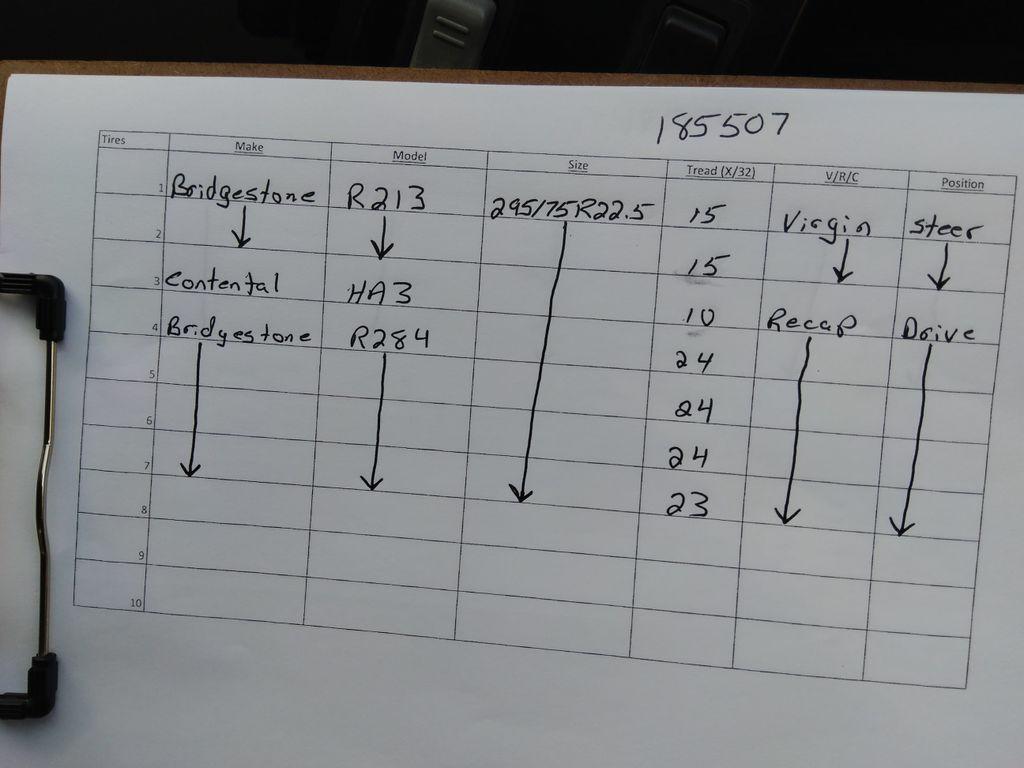 185507
Tires Make Model Size Tread (X/32) V/R/C Position
1 Bridgestone R213 295/75R22.5 15 Virgin Steer
2 15
3 Contental HA3 10 Recap Drive
4 Bridgestone R284 24
5 24
6 24
7 23
8
9
10